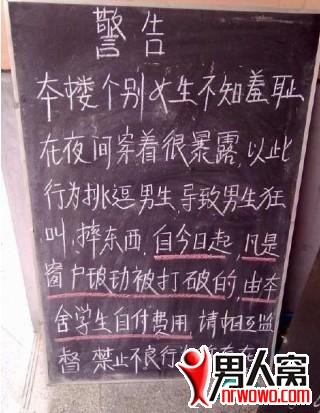 警告
本楼个别女生不知羞耻
在夜间穿着很暴露,以此
行为挑逗男生,导致男生狂
叫,摔东西,自今日起,凡是
窗户玻功被打破的,由本
舍学生自付费用,请相互监
督 禁止不良行
男人窝
nrwowo.com